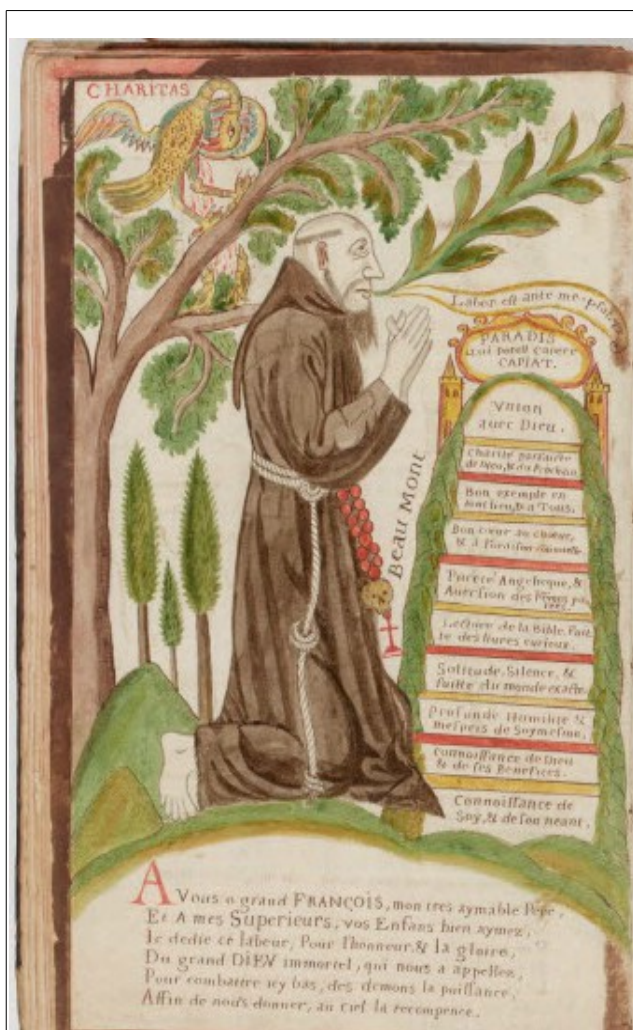 CHARITAS
Labor est ante me. psal
PARADIS
qui potest capere
CAPIAT.
Vnion
auec Dieu.
Charité parfaicte
de Dieu, & du Prochain
Bon exemple en
tout lieu, & a Tous.
Bon cœur au chœur,
& à l'oraison
Pureté Angelique, &
Auersion des
Lecture de la Bible, fuit
te des liures curieux.
Solitude, Silence, &
fuitte du monde exacte
Profonde Humilité &
mespris de Soymesme.
Connoissance de Dieu
& de ses Benefices.
Connoissance de
Soy, & de son neant.
Beau Mont
A Vous o grand FRANÇOIS, mon tres aymable Pere,
Et A mes Superieurs, vos Enfans bien aymez,
Ie dedie cé labeur, Pour l'honneur & la gloire,
Du grand DIEV immortel, qui nous a appellez,
Pour combattre icy bas, des demons la puissance,
Affin de nous donner, au ciel la recompence.